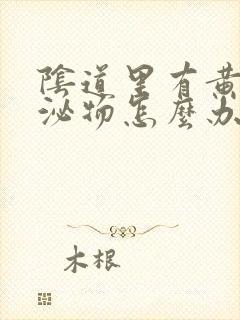 陰道里有黄
泌物怎麼办
木根